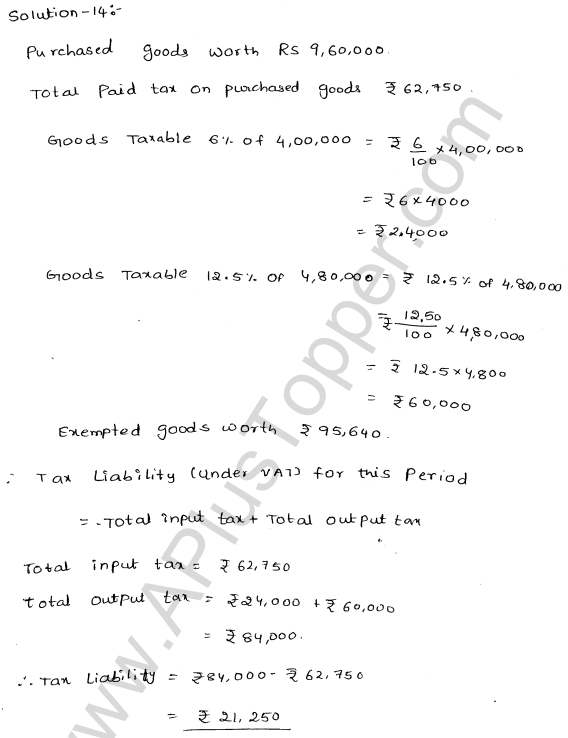 Solution-14:-
Purchased goods worth RS 9,60,000.
Total Paid tax on purchased goods ₹ 62,750.
Goods Taxable 6% of 4,00,000 = ₹ 6/100 × 4,00,000
= ₹ 6 × 4000
= ₹ 24,000
Goods Taxable 12.5% of 4,80,000 = ₹ 12.5% of 4,80,000
= ₹ 12.50/100 × 4,80,000
= ₹ 12.5 × 4,800
= ₹ 60,000
Exempted goods worth ₹ 95,640.
∴ Tax Liability (Under VAT) for this Period
= Total input tax + Total output tax
Total input tax = ₹ 62,750
Total output tax = ₹ 24,000 + ₹ 60,000
= ₹ 84,000.
∴ Tax Liability = ₹ 84,000 - ₹ 62,750
= ₹ 21,250
www.APlusTopper.com